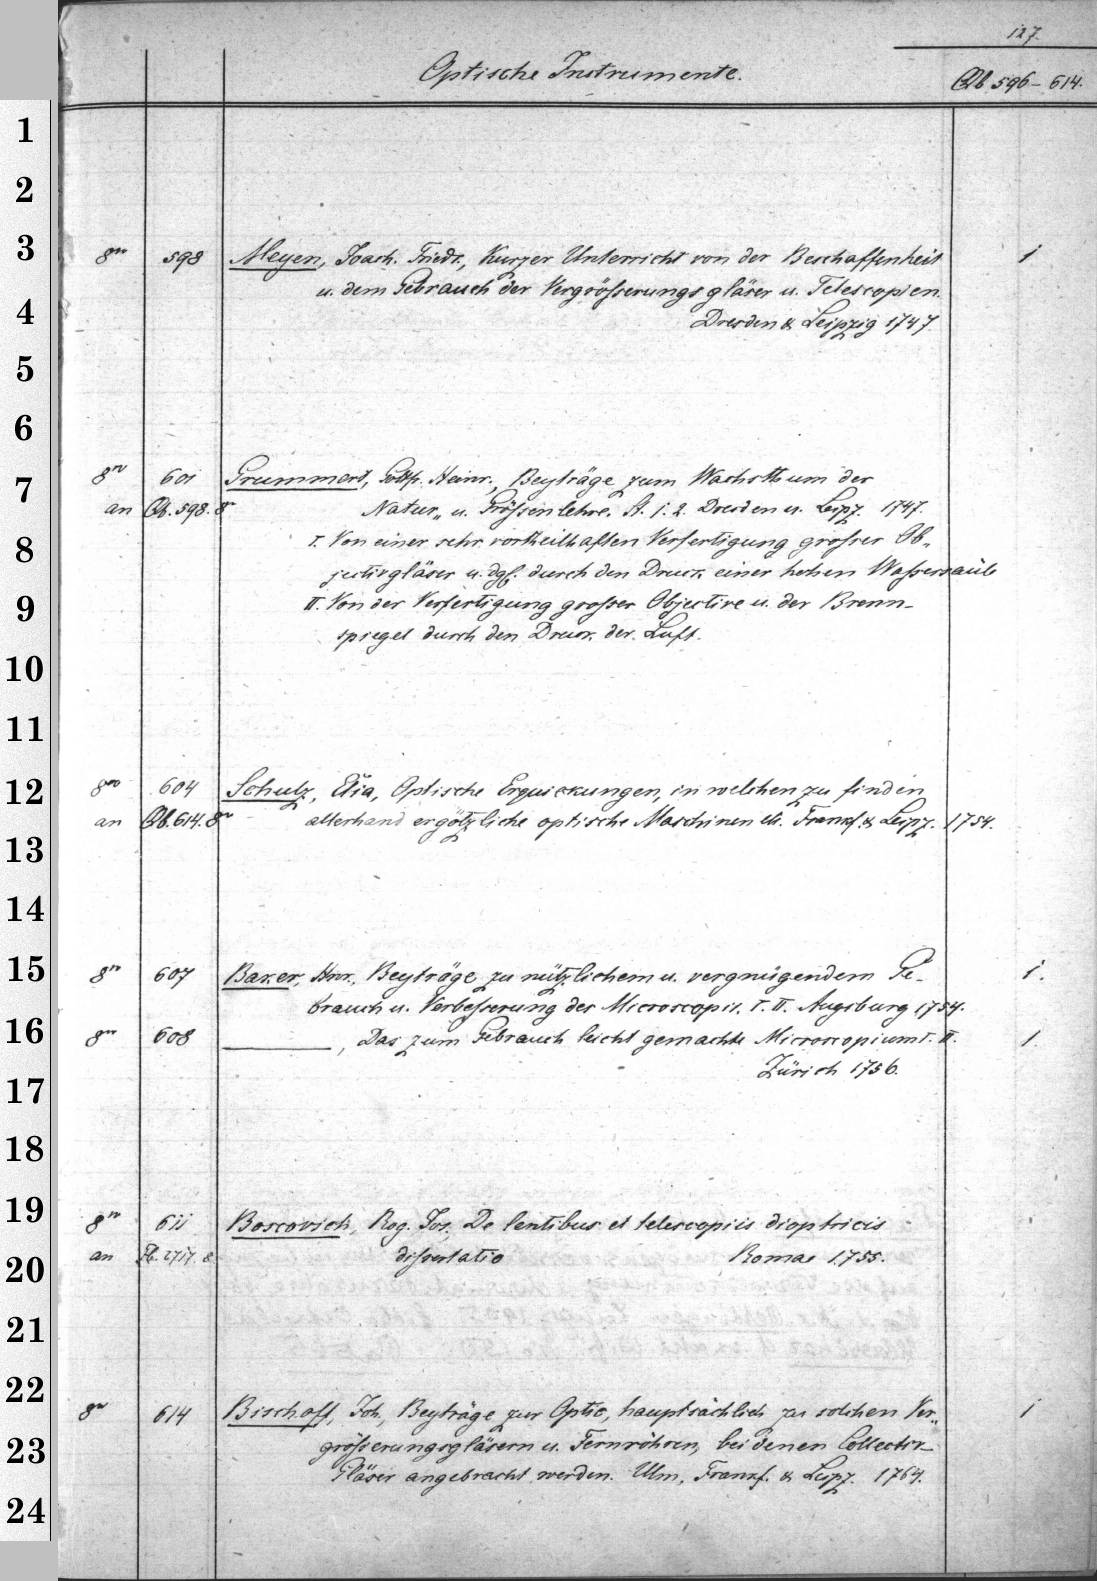 127.
Optische Instrumente.
Qb 596 – 614.
1
2
3
4
5
6
7
8
9
10
11
12
13
14
15
16
17
18
19
20
21
22
23
24
8vo 598 Meyen, Joach. Friedr., Kurzer Unterricht von der Beschaffenheit 1
u. dem Gebrauch der Vergrösserungsgläser u. Telescopien.
Dresden & Leipzig 1747
8vo 601 Grummert, Gottfr. Heinr., Beyträge zum Wachsthum der
an Qb. 598. 8 Natur„ u. Grössenlehre. St. 1. 2. Dresden u. Leipz. 1747.
I. Von einer sehr vortheilhaften Verfertigung grosser Ob„
jectivgläser u. dgl. durch den Druck einer hohen Wassersäule
II. Von der Verfertigung grosser Objective u. der Brenn-
spiegel durch den Druck der Luft.
8vo 604 Schulz, Elia, Optische Erquickungen, in welchen zu finden
an Qb. 614. 8vo allerhand ergötzliche optische Maschinen etc. Frankf. & Leipz. 1754.
8vo 607 Baker, Hnr., Beyträge zu nützlichem u. vergnügendem Ge- 1.
brauch u. Verbesserung des Microscopii. I. II. Augsburg 1754.
8vo 608 ———, Das zum Gebrauch leicht gemachte Microscopium I. II. 1.
Zürich 1756.
8vo 611 Boscovich, Rog. Jos. De lentibus et telescopiis dioptricis
an 2717. 8 dissertatio Romae 1755.
8vo 614 Bischoff, Joh., Beyträge zur Optic, hauptsächlich zu solchen Ver„ 1
grösserungsgläsern u. Fernröhren, bei denen Collectiv
Gläser angebracht werden. Ulm, Frankf. & Leipz. 1764.